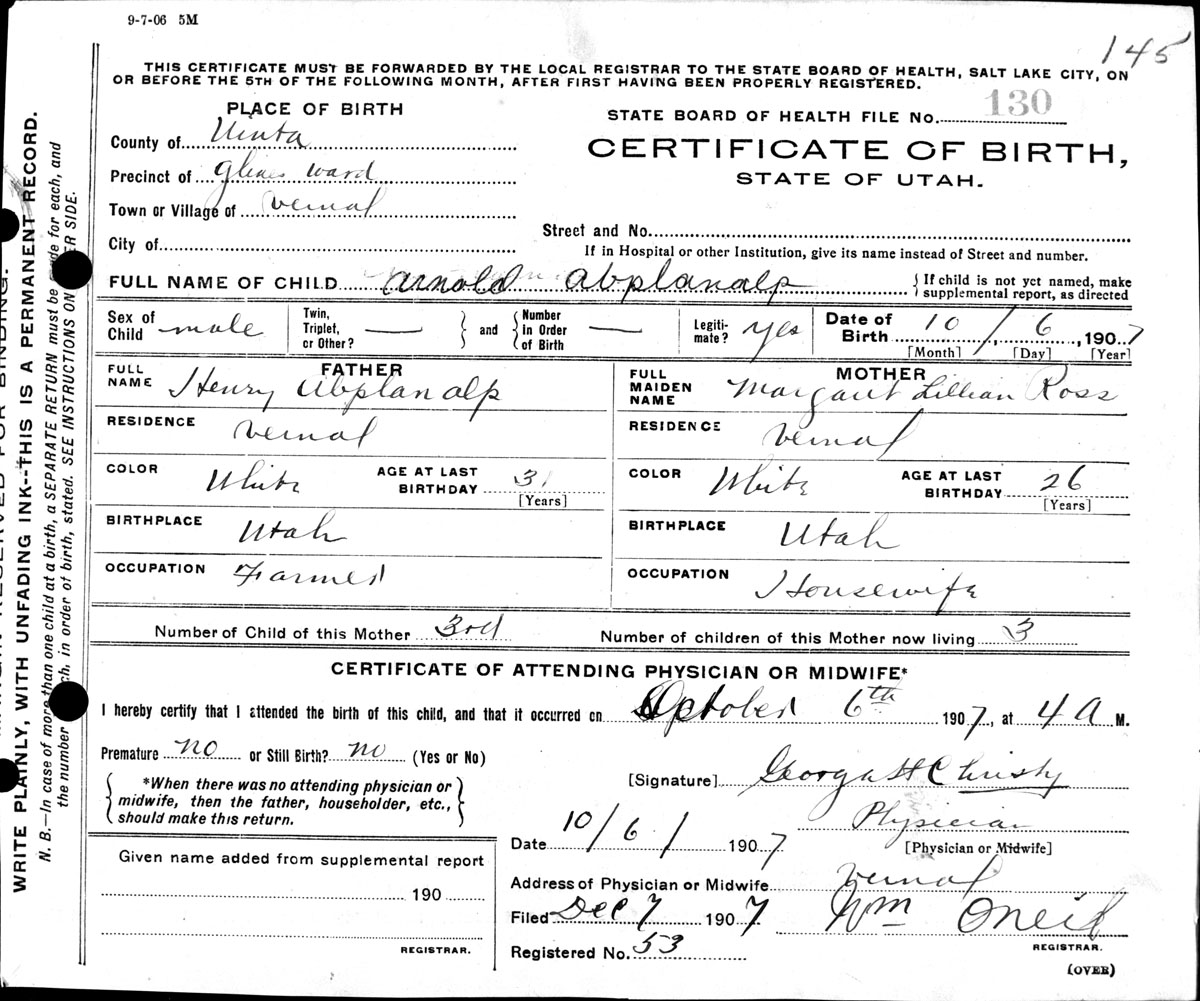 9-7-06 5M
145
THIS CERTIFICATE MUST BE FORWARDED BY THE LOCAL REGISTRAR TO THE STATE BOARD OF HEALTH, SALT LAKE CITY, ON
OR BEFORE THE 5TH OF THE FOLLOWING MONTH, AFTER FIRST HAVING BEEN PROPERLY REGISTERED.
PLACE OF BIRTH
STATE BOARD OF HEALTH FILE No. 130
County of Uinta
CERTIFICATE OF BIRTH,
STATE OF UTAH.
Precinct of Glines ward
Town or Village of Vernal
Street and No.
City of
If in Hospital or other Institution, give its name instead of Street and number.
FULL NAME OF CHILD Arnold Abplanalp
{If child is not yet named, make
supplemental report, as directed
Sex of Child male
Twin, Triplet, or Other? — } and { Number in Order of Birth —
Legiti-mate? yes
Date of Birth 10 / 6, 1907
[Month] [Day] [Year]
FATHER
FULL NAME Henry Abplanalp
RESIDENCE Vernal
COLOR White AGE AT LAST BIRTHDAY 31
[Years]
BIRTHPLACE Utah
OCCUPATION Farmer
MOTHER
FULL MAIDEN NAME Margaret Lillian Ross
RESIDENCE Vernal
COLOR White AGE AT LAST BIRTHDAY 26
[Years]
BIRTHPLACE Utah
OCCUPATION Housewife
Number of Child of this Mother 3rd Number of children of this Mother now living 3
CERTIFICATE OF ATTENDING PHYSICIAN OR MIDWIFE*
I hereby certify that I attended the birth of this child, and that it occurred on October 6th 1907, at 4 A M.
Premature no or Still Birth? no (Yes or No)
*When there was no attending physician or
midwife, then the father, householder, etc.,
should make this return.
[Signature] George H Christy
Physician
[Physician or Midwife]
Date 10/6/ 1907
Address of Physician or Midwife Vernal
Filed Dec 7 1907 Wm Oneil
REGISTRAR.
Registered No. 53
(OVER)
Given name added from supplemental report
190
REGISTRAR.
WRITE PLAINLY, WITH UNFADING INK--THIS IS A PERMANENT RECORD.
N. B.—In case of more than one child at a birth, a SEPARATE RETURN must be made for each, and
the number each, in order of birth, stated. SEE INSTRUCTIONS ON OTHER SIDE.